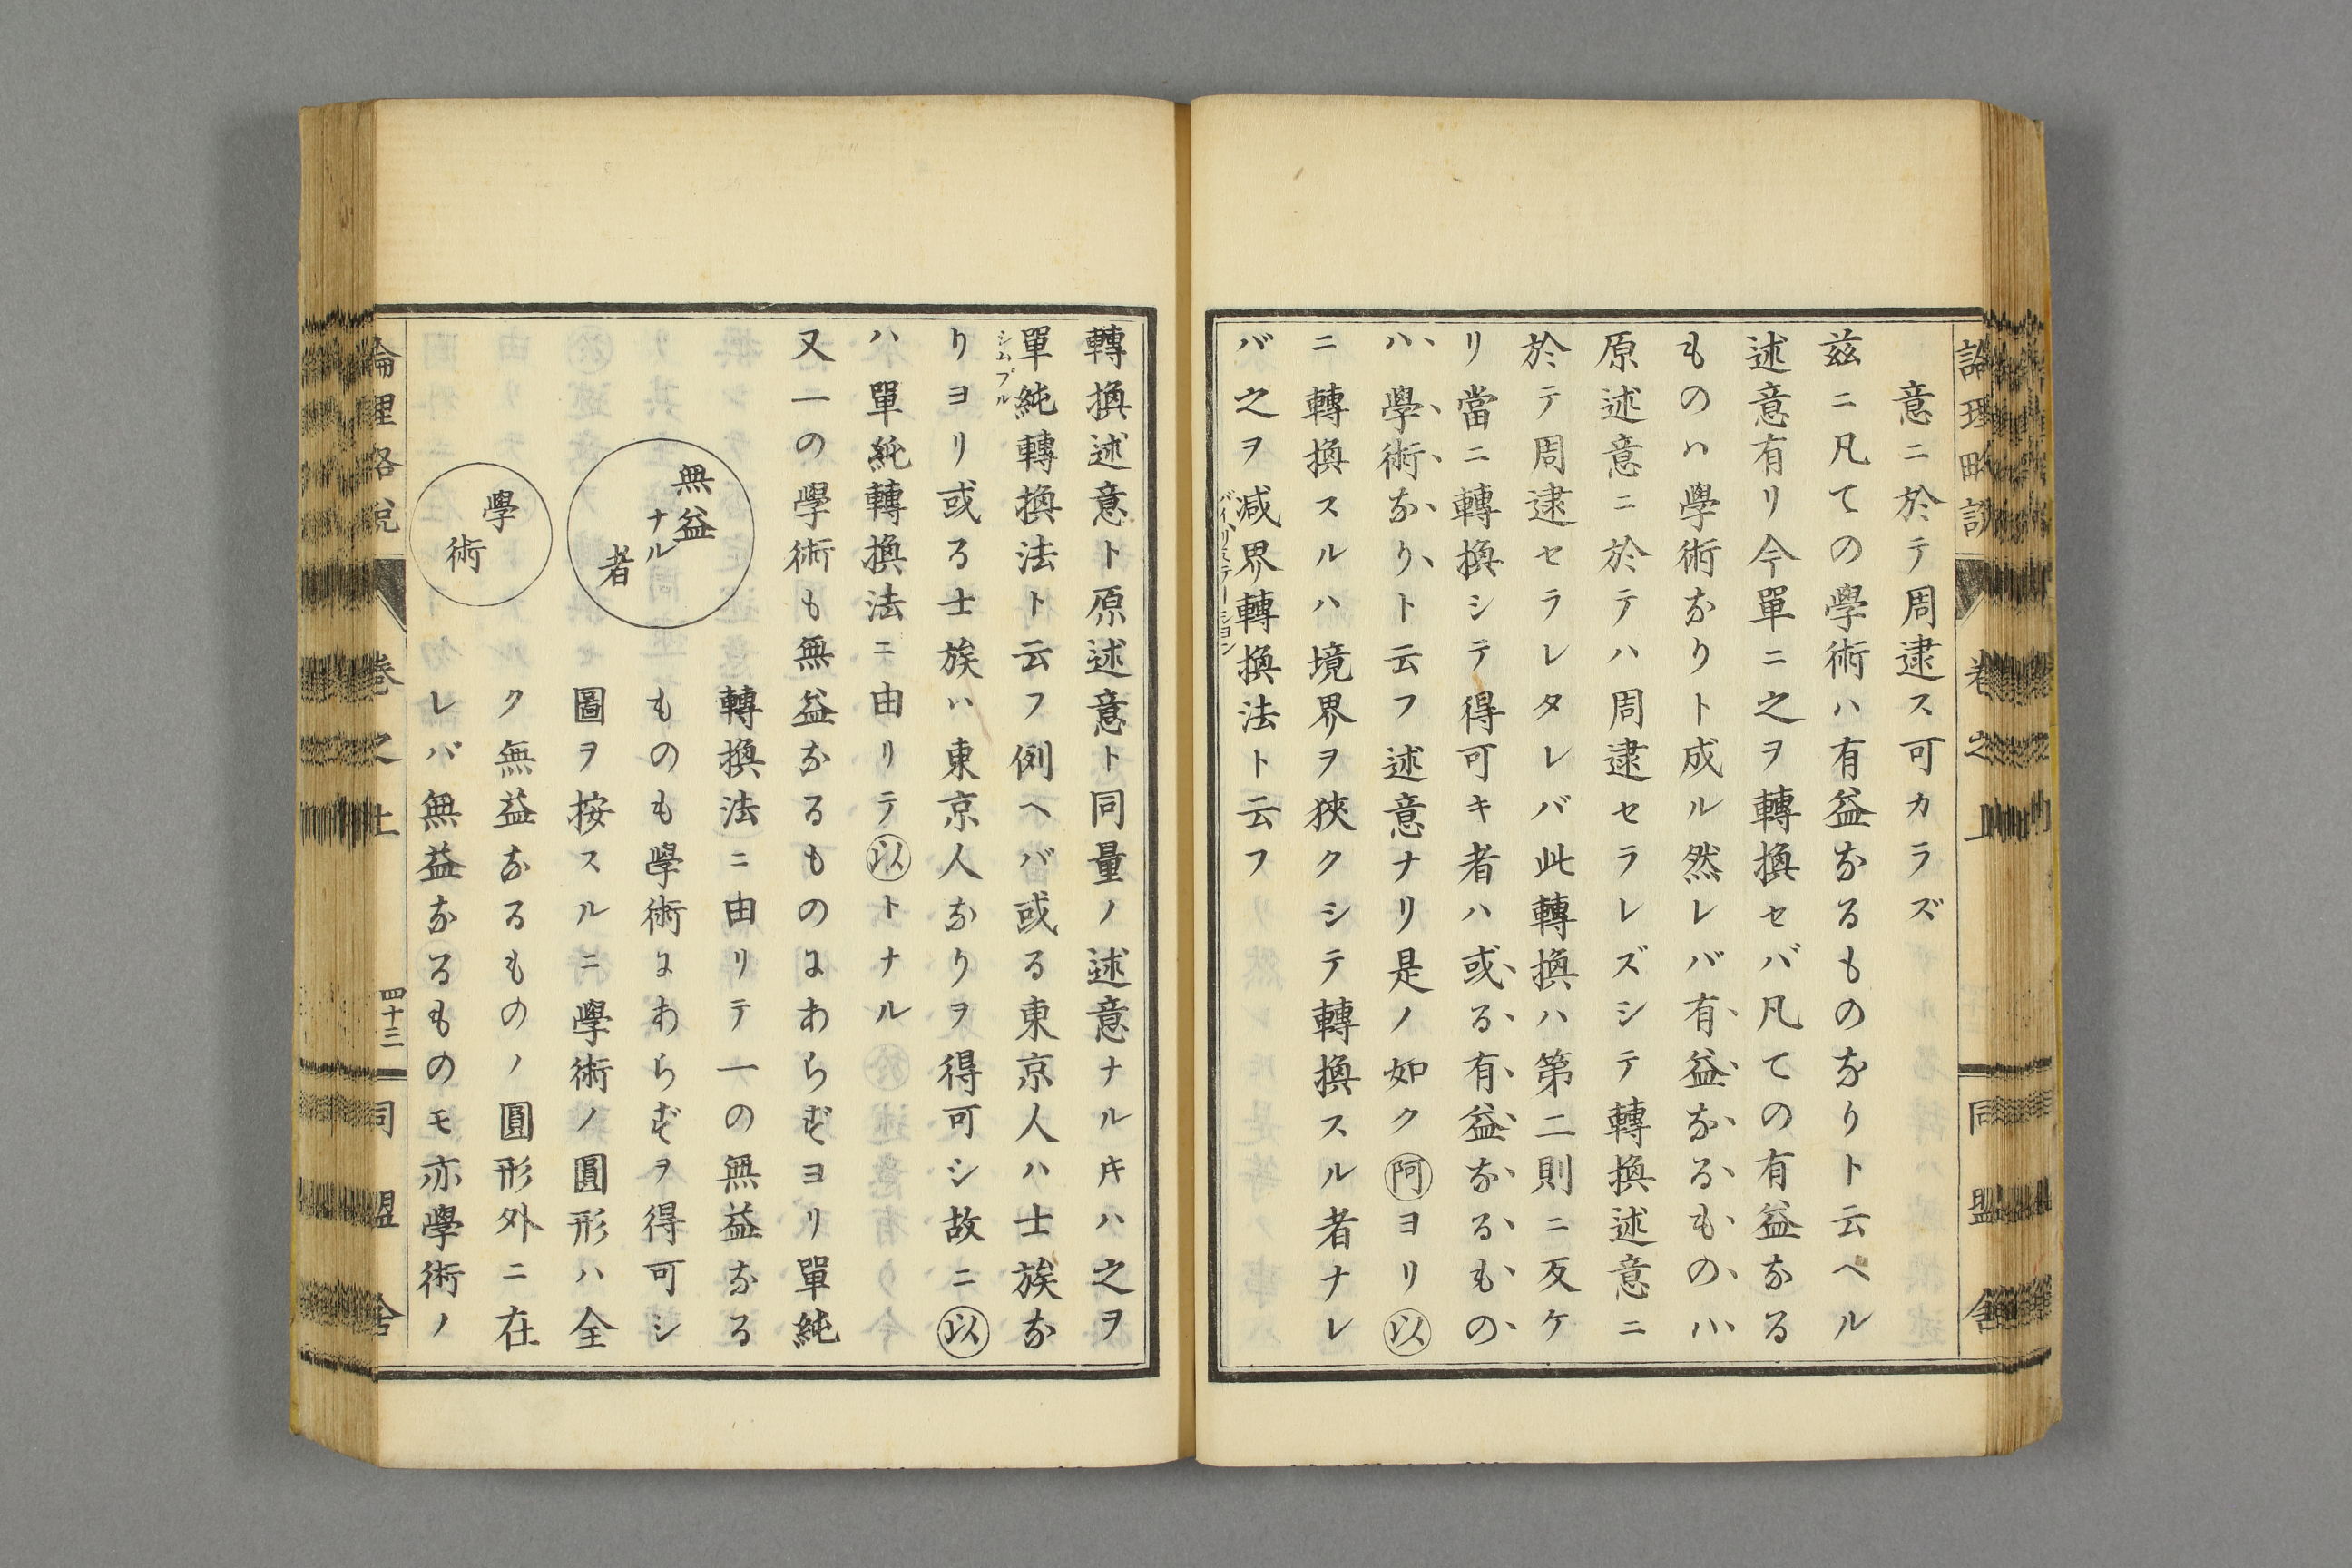 意ニ於テ周逮ス可カラズ
茲ニ凡ての學術ハ有益なるものなりト云ヘル
述意有リ今單ニ之ヲ轉換セバ凡ての有益なる
ものハ學術なりト成ル然レバ有益なるものハ
原述意ニ於テハ周逮セラレズシテ轉換述意ニ
於テ周逮セラレタレバ此轉換ハ第二則ニ反ケ
リ當ニ轉換シテ得可キ者ハ或る有益なるもの
ハ學術なりト云フ述意ナリ是ノ如ク阿ヨリ以
ニ轉換スルハ境界ヲ狹クシテ轉換スル者ナレ
バ之ヲ減界轉換法ト云フ
轉換述意ト原述意ト同量ノ述意ナルキハ之ヲ
單純轉換法ト云フ例ヘバ或る東京人ハ士族な
シムプル
りヨリ或る士族ハ東京人なりヲ得可シ故ニ以
ハ單純轉換法ニ由リテ以トナル
又一の學術も無益なるものにあらずヨリ單純
轉換法ニ由リテ一の無益なる
ものも學術にあらずヲ得可シ
圖ヲ按スルニ學術ノ圓形ハ全
ク無益なるものノ圓形外ニ在
レバ無益なるものモ亦學術ノ
無益
ナル
者
學
術
論理略說
卷之上
四十三
同盟舍